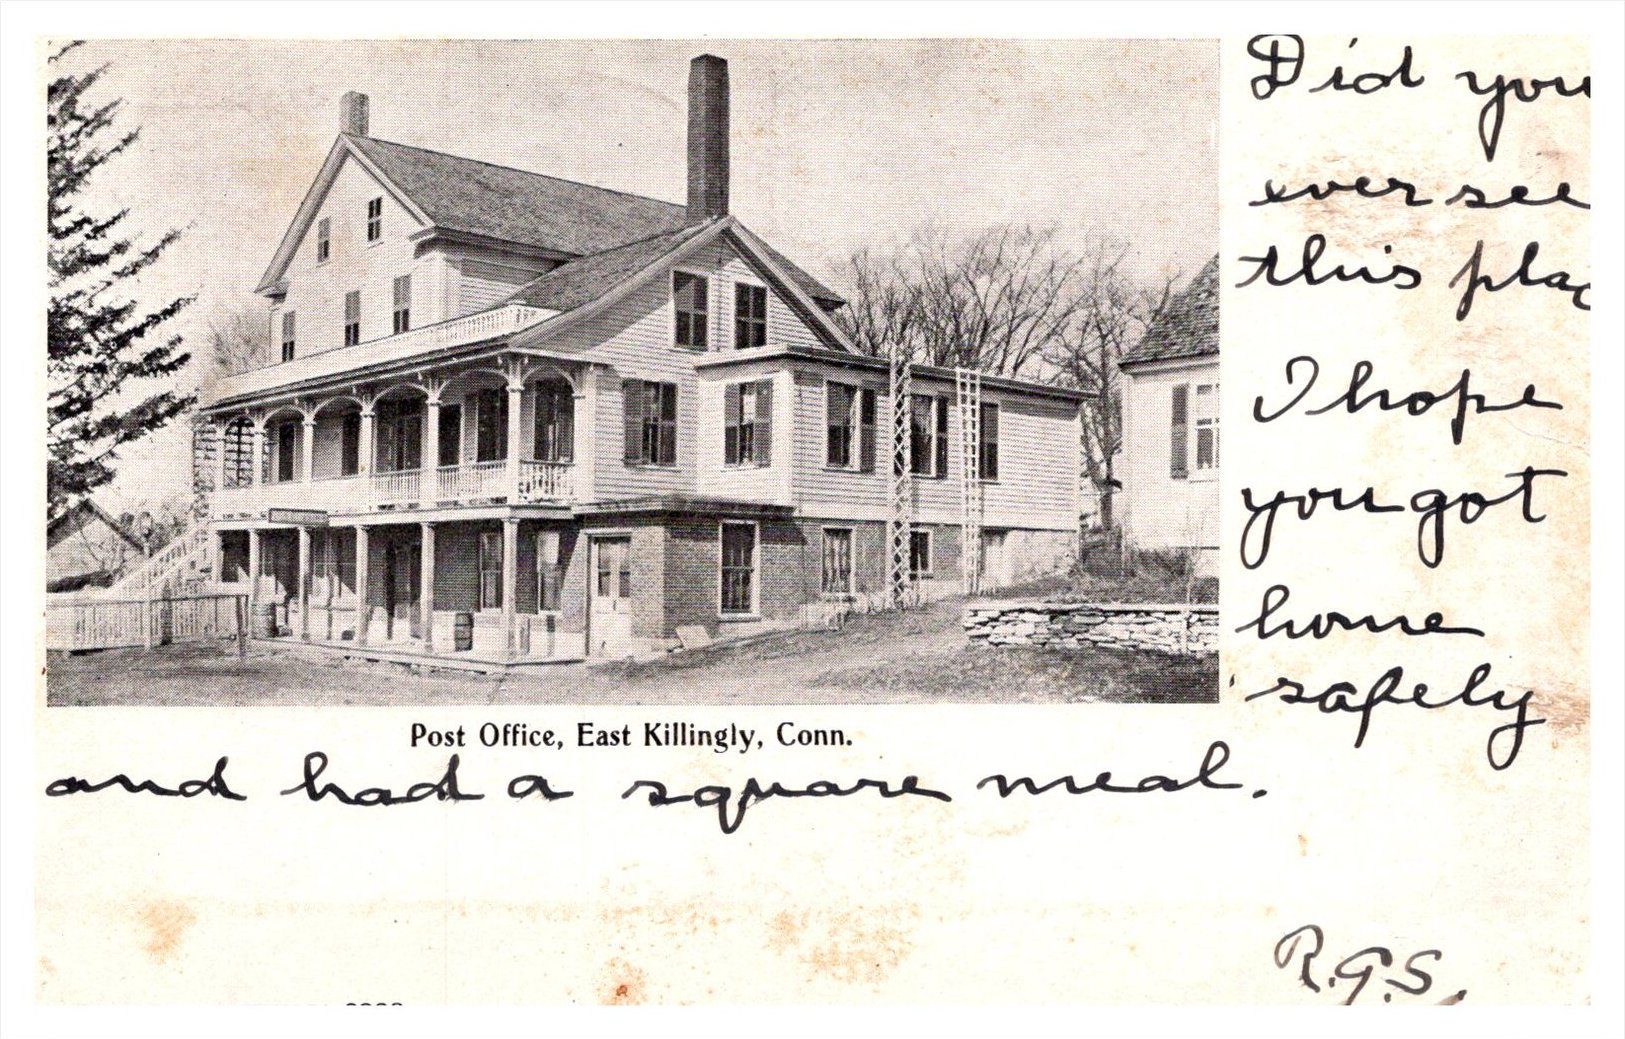 Did you
ever see
this plac
I hope
you got
home
safely
Post Office, East Killingly, Conn.
and had a square meal.
R.G.S.